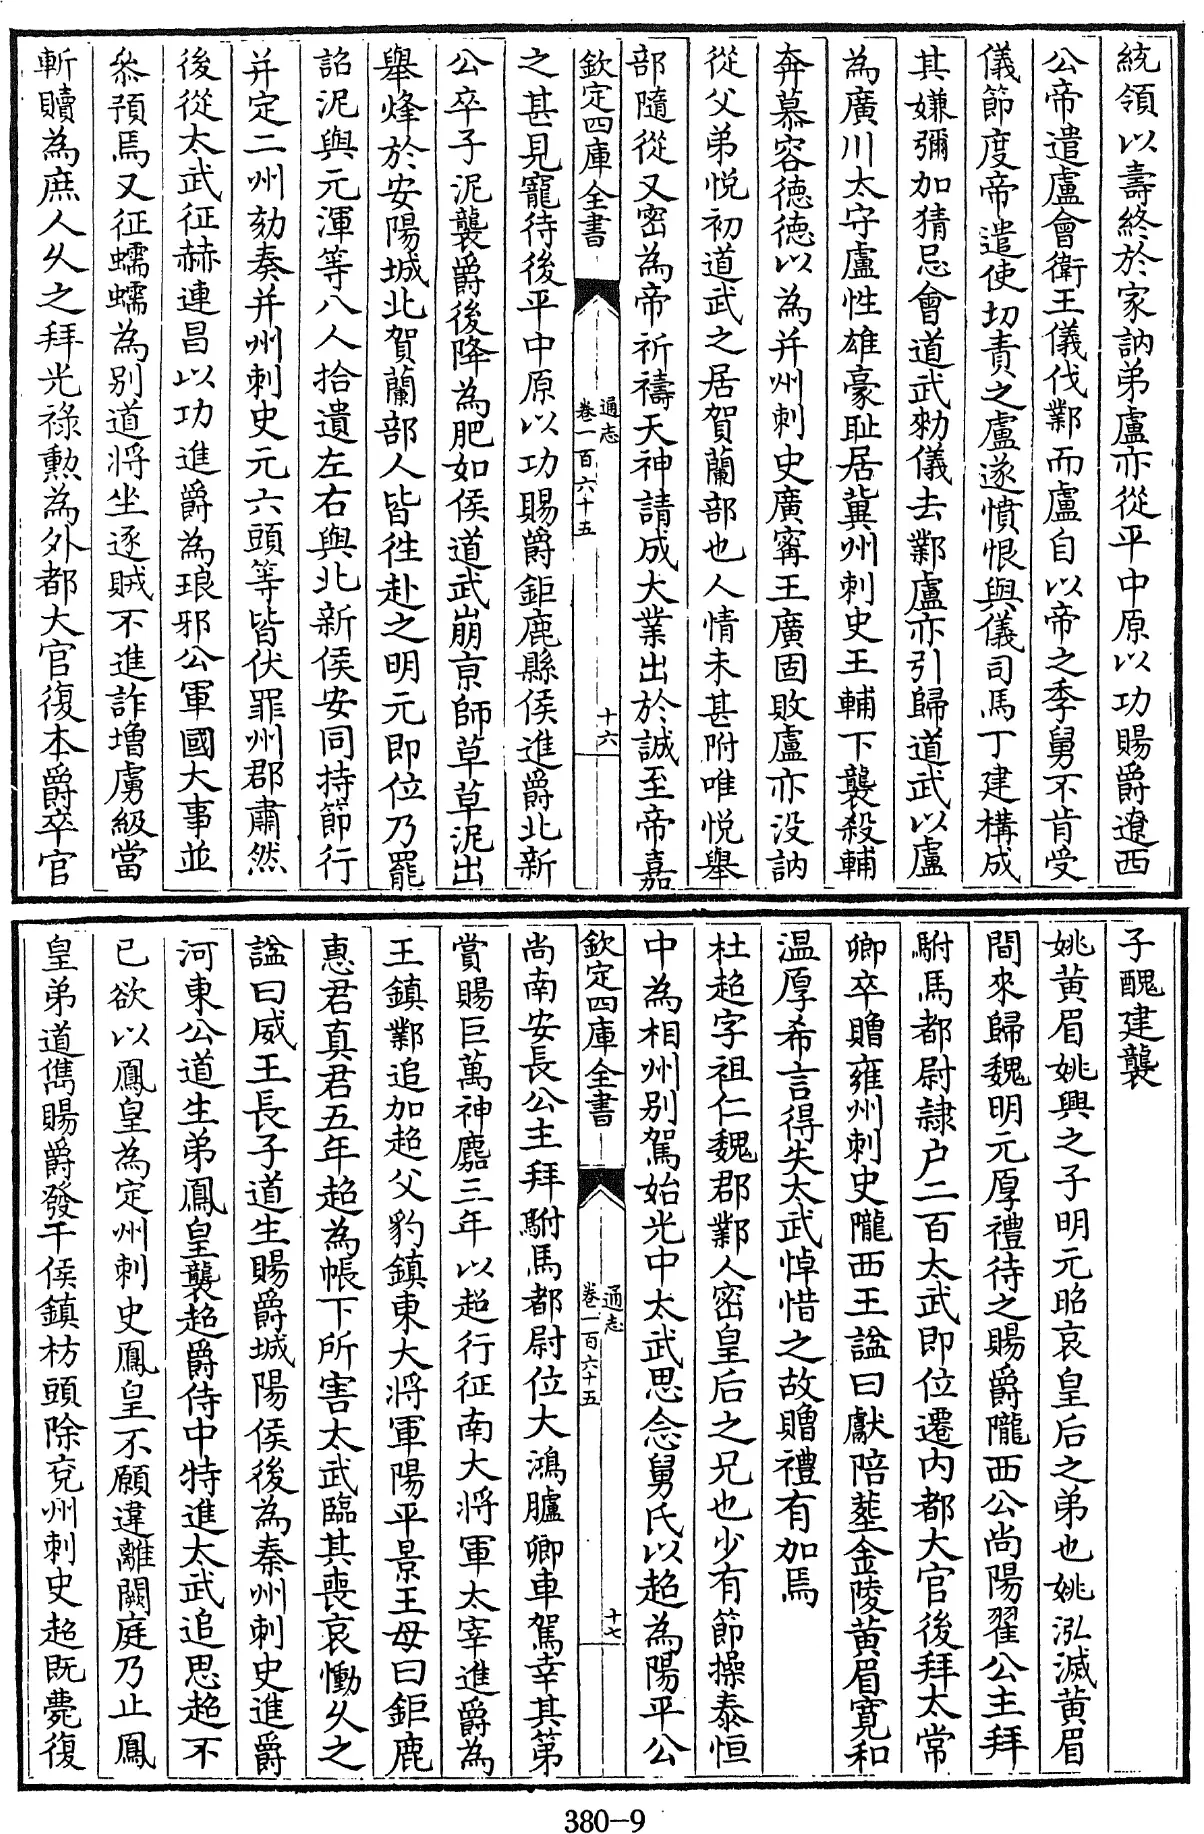 統領以壽終於家訥弟盧亦從平中原以功賜爵遼西
公帝遣盧會衛王儀伐鄴而盧自以帝之季舅不肯受
儀節度帝遣使切責之盧遂憤恨與儀司馬丁建構成
其嫌彌加猜忌會道武勑儀去鄴盧亦引歸道武以盧
為廣川太守盧性雄豪耻居兾州刺史王輔下襲殺輔
奔慕容徳徳以為并州刺史廣寗王廣固敗盧亦没訥
從父弟悅初道武之居賀蘭部也人情未甚附唯悅舉
部隨從又密為帝祈禱天神請成大業出於誠至帝嘉
欽定四庫全書
通志
卷一百六十五
十六
之甚見寵待後平中原以功賜爵鉅鹿縣侯進爵北新
公卒子泥襲爵後降為肥如侯道武崩亰師草草泥出
舉烽於安陽城北賀蘭部人皆徃赴之明元即位乃罷
詔泥與元渾等八人拾遺左右與北新侯安同持節行
并定二州劾奏并州刺史元六頭等皆伏罪州郡肅然
後從太武征赫連昌以功進爵為琅邪公軍國大事並
叅預焉又征蠕蠕為别道將坐逐賊不進詐增虜級當
斬贖為庶人乆之拜光禄勲為外都大官復本爵卒官
子醜建襲
姚黄眉姚興之子明元昭哀皇后之弟也姚泓滅黄眉
間來歸魏明元厚禮待之賜爵隴西公尚陽翟公主拜
駙馬都尉隷户二百太武即位遷内都大官後拜太常
卿卒贈雍州刺史隴西王諡曰獻陪塟金陵黄眉寛和
温厚希言得失太武悼惜之故贈禮有加焉
杜超字祖仁魏郡鄴人密皇后之兄也少有節操泰恒
中為相州别駕始光中太武思念舅氏以超為陽平公
欽定四庫全書
通志
卷一百六十五
十七
尚南安長公主拜駙馬都尉位大鴻臚卿車駕幸其第
賞賜巨萬神䴥三年以超行征南大將軍太宰進爵為
王鎮鄴追加超父豹鎮東大將軍陽平景王母曰鉅鹿
惠君真君五年超為帳下所害太武臨其喪哀慟乆之
諡曰威王長子道生賜爵城陽侯後為秦州刺史進爵
河東公道生弟鳳皇襲超爵侍中特進太武追思超不
已欲以鳳皇為定州刺史鳳皇不願違離闕庭乃止鳳
皇弟道儁賜爵發干侯鎮枋頭除兖州刺史超既薨復
380-9